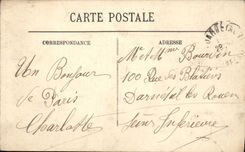 CARTE POSTALE
CORRESPONDANCE
ADRESSE
Un Bonjour
de Paris
Charlotte
Mr et Mme Bourdon
100 Rue des
Darnetal les Rouen
Seine Inférieure